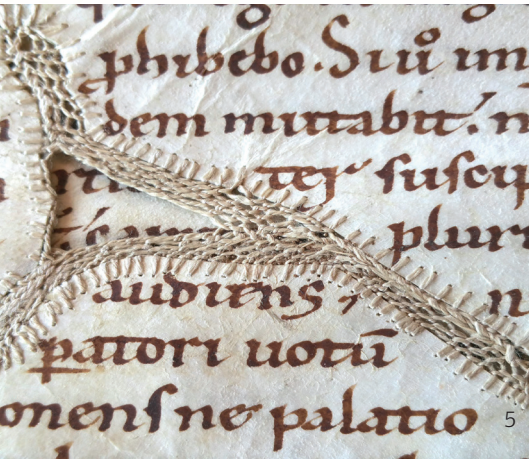 phibebo. Siů im
dem mittabit. n
ter suscip
plur
audiens, n
ꝑatori uotū
onens ne palatio
5